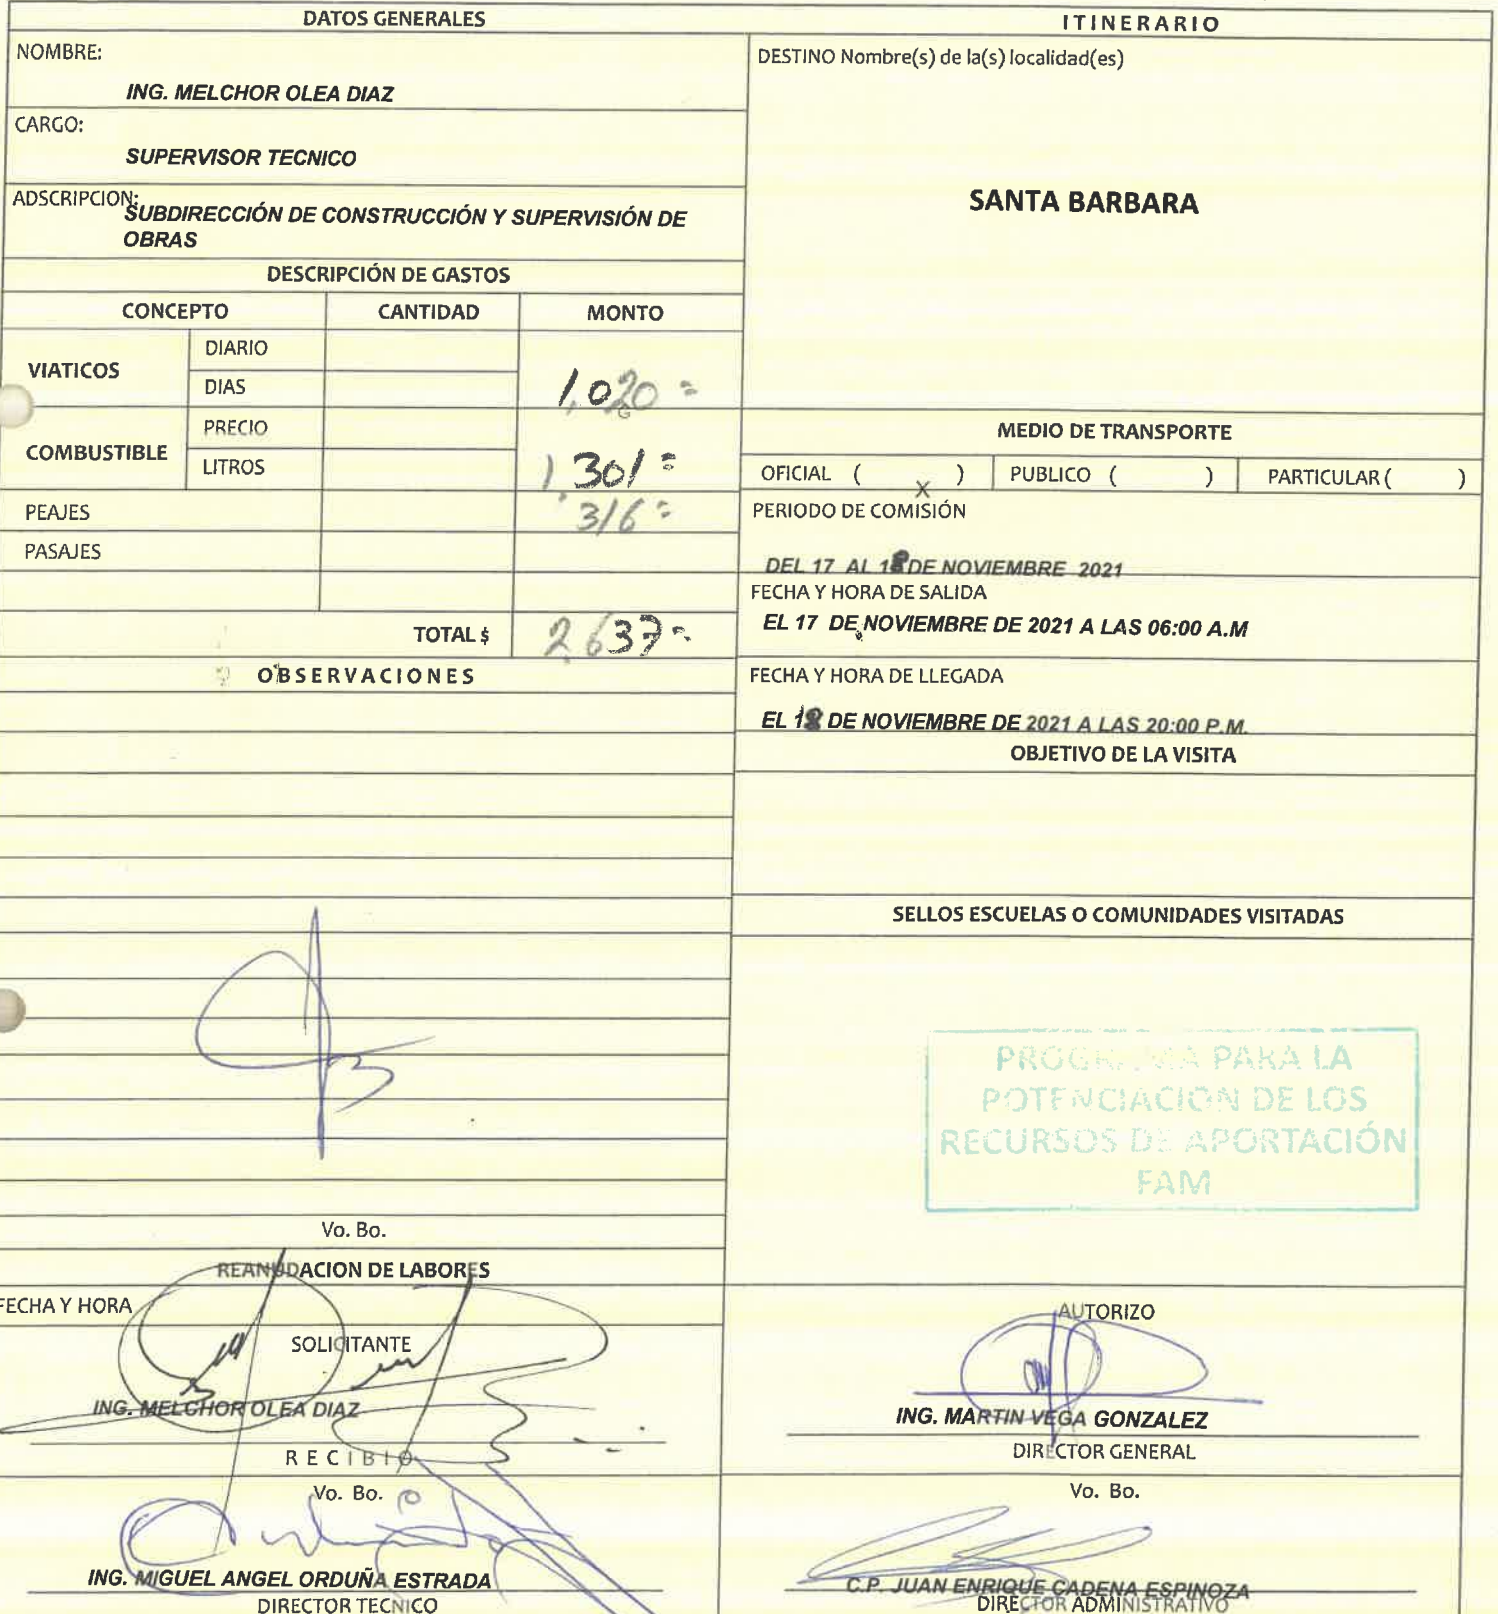 DATOS GENERALES
NOMBRE:
ING. MELCHOR OLEA DIAZ
CARGO:
SUPERVISOR TECNICO
ADSCRIPCION:
SUBDIRECCIÓN DE CONSTRUCCIÓN Y SUPERVISIÓN DE
OBRAS
DESCRIPCIÓN DE GASTOS
CONCEPTO CANTIDAD MONTO
VIATICOS
DIARIO
DIAS
1,020=
COMBUSTIBLE
PRECIO
LITROS
1,301=
PEAJES 316=
PASAJES
TOTAL $ 2,637=
OBSERVACIONES
Vo. Bo.
REANUDACION DE LABORES
FECHA Y HORA
SOLICITANTE
ING. MELCHOR OLEA DIAZ
RECIBIO
Vo. Bo.
ING. MIGUEL ANGEL ORDUÑA ESTRADA
DIRECTOR TECNICO
ITINERARIO
DESTINO Nombre(s) de la(s) localidad(es)
SANTA BARBARA
MEDIO DE TRANSPORTE
OFICIAL ( X ) PUBLICO ( ) PARTICULAR ( )
PERIODO DE COMISIÓN
DEL 17 AL 18 DE NOVIEMBRE 2021
FECHA Y HORA DE SALIDA
EL 17 DE NOVIEMBRE DE 2021 A LAS 06:00 A.M
FECHA Y HORA DE LLEGADA
EL 18 DE NOVIEMBRE DE 2021 A LAS 20:00 P.M.
OBJETIVO DE LA VISITA
SELLOS ESCUELAS O COMUNIDADES VISITADAS
PROGRAMA PARA LA
POTENCIACION DE LOS
RECURSOS DE APORTACIÓN
FAM
AUTORIZO
ING. MARTIN VEGA GONZALEZ
DIRECTOR GENERAL
Vo. Bo.
C.P. JUAN ENRIQUE CADENA ESPINOZA
DIRECTOR ADMINISTRATIVO